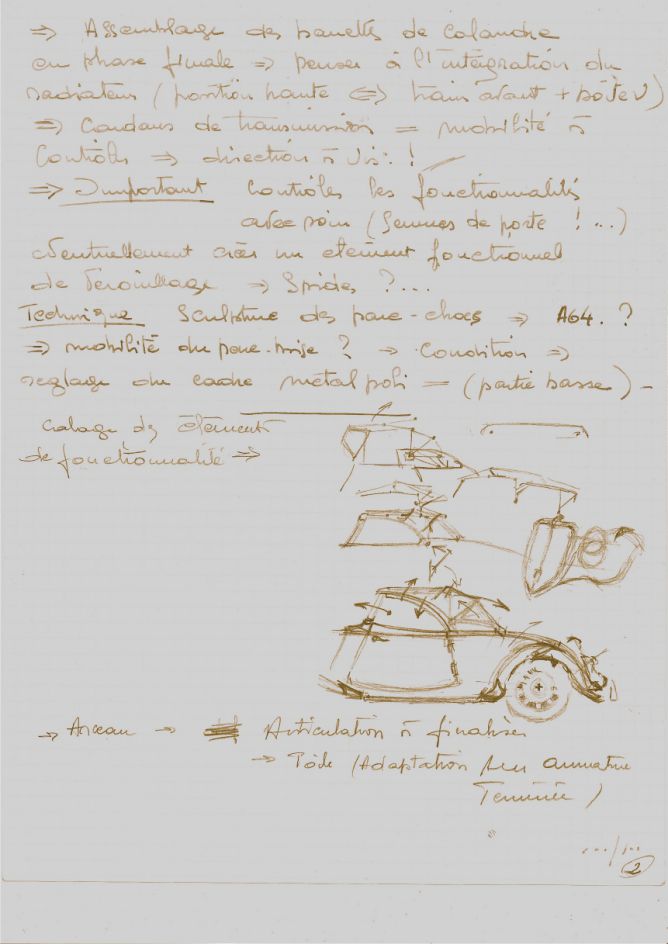 ⇒ Assemblage des panettes de Calandre
en phase finale ⇒ penser à l'intégration du
radiateur (position haute ⇔ train avant + boîte v)
⇒ Cardans de transmission = mobilité à
Contrôler ⇒ direction à vis !
⇒ Important Contrôler les fonctionnalités
avec soin (femmes de porte ! ...)
eventuellement créer un element fonctionnel
de verouillage ⇒ ?...
Technique Sculpture des pare-chocs ⇒ A64. ?
⇒ mobilité du pare-brise ? → Condition ⇒
reglage du cadre métal poli = (partie basse) -
calage des éléments
de fonctionnalité ⇒
→ Arceau → Articulation à finaliser
→ (Adaptation sur armature
Terminée)
.../...
2